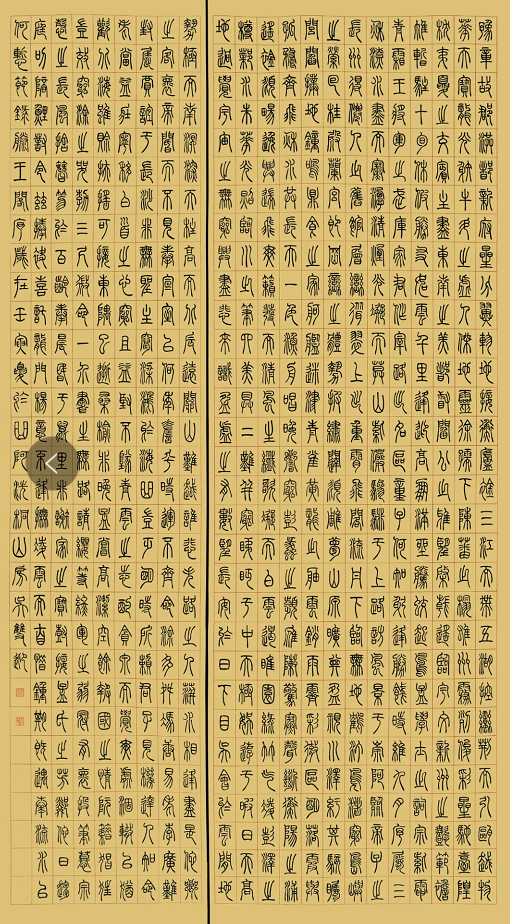 豫章故郡洪都新府星分翼軫地接衡廬襟三江而帶五湖控蠻荊而引甌越物
華天寶龍光射牛斗之墟人傑地靈徐孺下陳蕃之榻雄州霧列俊采星馳臺隍
枕夷夏之交賓主盡東南之美都督閻公之雅望棨戟遙臨宇文新州之懿範襜
帷暫駐十旬休假勝友如雲千里逢迎高朋滿座騰蛟起鳳孟學士之詞宗紫電
青霜王將軍之武庫家君作宰路出名區童子何知躬逢勝餞時維九月序屬三
秋潦水盡而寒潭清煙光凝而暮山紫儼驂騑於上路訪風景於崇阿臨帝子之
長洲得仙人之舊館層臺聳翠上出重霄飛閣流丹下臨無地鶴汀鳧渚窮島嶼
之縈回桂殿蘭宮即岡巒之體勢披繡闥俯雕甍山原曠其盈視川澤紆其駭矚
閭閻撲地鐘鳴鼎食之家舸艦迷津青雀黃龍之軸雲銷雨霽彩徹區明落霞與
孤鶩齊飛秋水共長天一色漁舟唱晚響窮彭蠡之濱雁陣驚寒聲斷衡陽之浦
遙襟甫暢逸興遄飛爽籟發而清風生纖歌凝而白雲遏睢園綠竹氣凌彭澤之
樽鄴水朱華光照臨川之筆四美具二難并窮睇眄於中天極娛遊於暇日天高
地迥覺宇宙之無窮興盡悲來識盈虛之有數望長安於日下目吳會於雲間地
勢極而南溟深天柱高而北辰遠關山難越誰悲失路之人萍水相逢盡是他鄉
之客懷帝閽而不見奉宣室以何年嗟乎時運不齊命途多舛馮唐易老李廣難
封屈賈誼於長沙非無聖主竄梁鴻於海曲豈乏明時所賴君子見機達人知命
老當益壯寧移白首之心窮且益堅不墜青雲之志酌貪泉而覺爽處涸轍以猶
歡北海雖賒扶搖可接東隅已逝桑榆非晚孟嘗高潔空餘報國之情阮籍猖狂
豈效窮途之哭勃三尺微命一介書生無路請纓等終軍之弱冠有懷投筆慕宗
愨之長風舍簪笏於百齡奉晨昏於萬里非謝家之寶樹接孟氏之芳鄰他日趨
庭叨陪鯉對今茲捧袂喜託龍門楊意不逢撫凌雲而自惜鍾期既遇奏流水以
何慚節錄滕王閣序歲在壬寅於阿洗桐山房吳雙